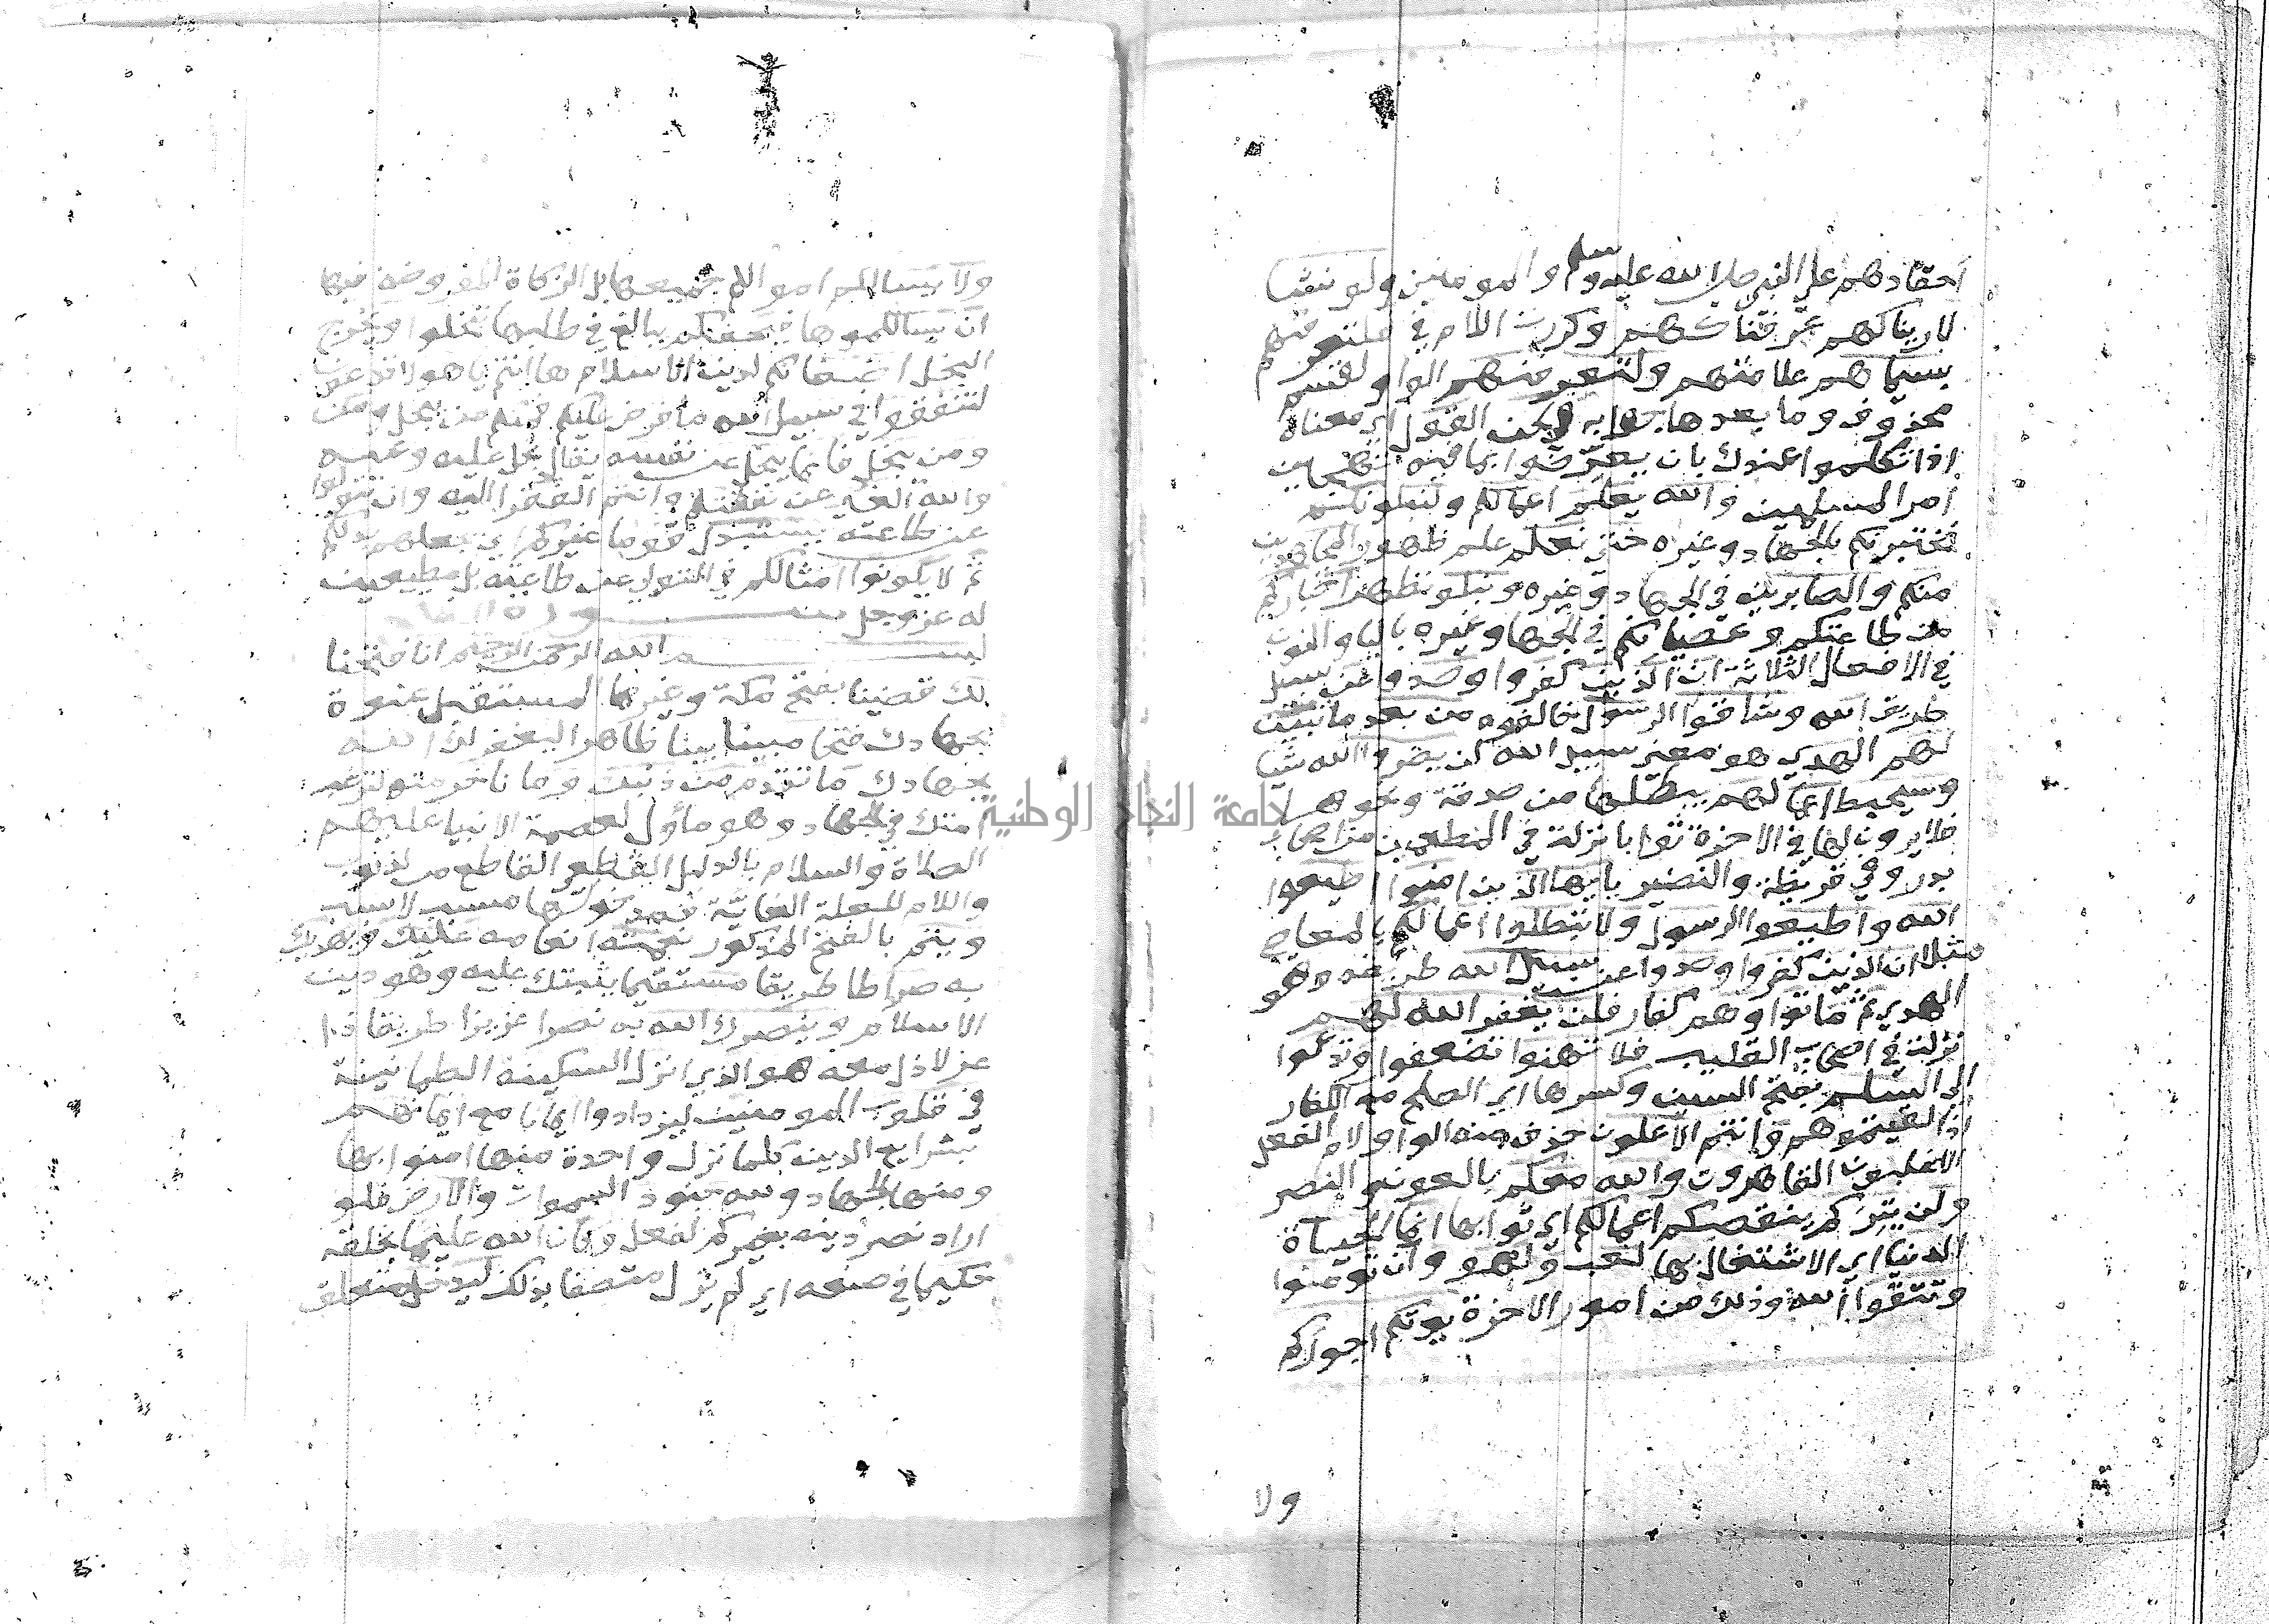 أحقادهم علي النبي صلا الله عليه وسلم والمومنين ولو نشا
لاريناكهم عرفناكهم وكررت اللام في فلتعرفتهم
بسيماهم علامتهم ولتعرفنهم الواو لقسم
محذوف وما بعدها جوابه في لحن القول اي معناه
اذا تكلموا عندك بان يعرضوا بما فيه تهجين
امر المسلمين والله يعلم اعمالكم ولنبلونكم
نختبرنكم بالجهاد وغيره حتي نعلم علم ظهور المجاهدين
منكم والصابرين في الجهاد وغيره ونبلو نظهر اخباركم
من طاعتكم وعصيانكم في الجهاد وغيره باليا والنون
في الافعال الثلاثة ان الذين كفروا وصدوا عن سبيل
طريق الله وشاقوا الرسول خالفوه من بعد ما تبين
لهم الهدي هو معني سبيل الله لن يضروا الله شيا
وسيحبط اعمالهم يبطلها من صدقة ونحوها
فلا يرون لها في الاخرة ثوابا نزلت في المطعمين من اصحاب
بدر وفي قريظة والنضير يايها الذين امنوا اطيعوا
الله واطيعوا الرسول ولا تبطلوا اعمالكم بالمعاصي
مثلا ان الذين كفروا وصدوا عن سبيل الله طريقه وهو
الهدي ثم ماتوا وهم كفار فلن يغفر الله لهم
نزلت في اصحاب القليب فلا تهنوا تضعفوا وتدعوا
الي السلم بفتح السين وكسرها اي الصلح مع الكفار
اذا لقيتموهم وانتم الاعلون حذف منه الواو لام الفعل
الاغلبون القاهرون والله معكم بالعون والنصر
ولن يتركم ينقصكم اعمالكم اي ثوابها انما الحياة
الدنيا اي الاشتغال بها لعب ولهو وان تومنوا
وتتقوا الله وذلك من امور الاخرة يوتكم اجوركم
ولا
ولا يسالكم اموالكم جميعها بل الزكاة المفروضة فيها
ان يسالكموها فيحفكم يبالغ في طلبها تبخلوا ويخرج
البخل اضغانكم لدين الاسلام ها انتم يا هولا تدعون
لتنفقوا في سبيل الله ما فرض عليكم فمنكم من يبخل ومن
ومن يبخل فانما يبخل عن نفسه يقال بخل عليه وعنه
والله الغني عن نفقتكم وانتم الفقرا اليه وان تتولوا
عن طاعته يستبدل قوما غيركم اي يجعلهم بدلكم
ثم لا يكونوا امثالكم في التولي عن طاعته بل مطيعين
له عز وجل
بسم الله الرحمن الرحيم انا فتحنا
لك قضينا بفتح مكة وغيرها المستقبل عنوة
بجهادك فتحا مبينا بينا ظاهرا ليغفر لك الله
بجهادك ما تقدم من ذنبك وما تاخر منه لترغب
امتك في الجهاد وهو مأول لعصمة الانبيا عليهم
الصلاة والسلام بالدليل القاطع من الذنوب
واللام للعلة الغائية فمدخولها مسبب لا سبب
ويتم بالفتح المذكور نعمته انعامه عليك ويهديك
به صراطا طريقا مستقيما يثبتك عليه وهو دين
الاسلام وينصرك الله به نصرا عزيزا طريقا ذا
عز لا ذل معه هو الذي انزل السكينة الطمانينة
في قلوب المومنين ليزدادوا ايمانا مع ايمانهم
بشرايع الدين كلما نزل واحدة منها امنوا بها
ومنها الجهاد ولله جنود السموات والارض فلو
اراد نصر دينه بغيركم لفعل وكان الله عليما بخلقه
حكيما في صنعه اي لم يزل متصفا بذلك ليدخل متعلق
جامعة النجاح الوطنية